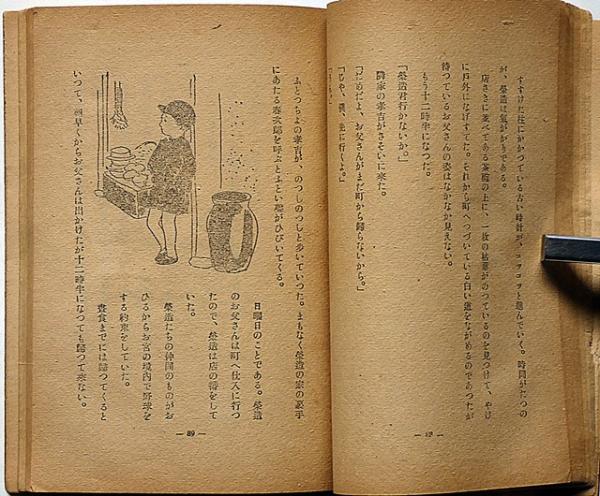 すすけた柱にかかつている古い時計が、コツコツと進んでいく。時間がたつの
が、榮造は氣がかりである。
店さきに並べてある茶碗の上に、一枚の枯葉がのつているのを見つけて、やけ
に戸外になげすてた。それから町へつづいている白い道をながめるのであつたが
待つているお父さんの姿はなかなか見えない。
もう十二時半になつた。
「榮造君行かないか。」
隣家の孝吉がさそいに來た。
「だめだよ、お父さんがまだ町から歸らないから。」
「じや、僕、先に行くよ。」
ふとつちよの孝吉が、のつしのつしと歩いていつた。まもなく榮造の家の裏手
にあたる春次郎を呼ぶふとい聲がひびいてくる。
日曜日のことである。榮造
のお父さんは町へ仕入に行つ
たので、榮造は店の番をして
いた。
榮造たちの仲間のものがお
ひるからお宮の境内で野球を
する約束をしていた。
晝食までには歸つてくると
いつて、朝早くからお父さんは出かけたが十二時半になつても歸つて來ない。
— 89 —